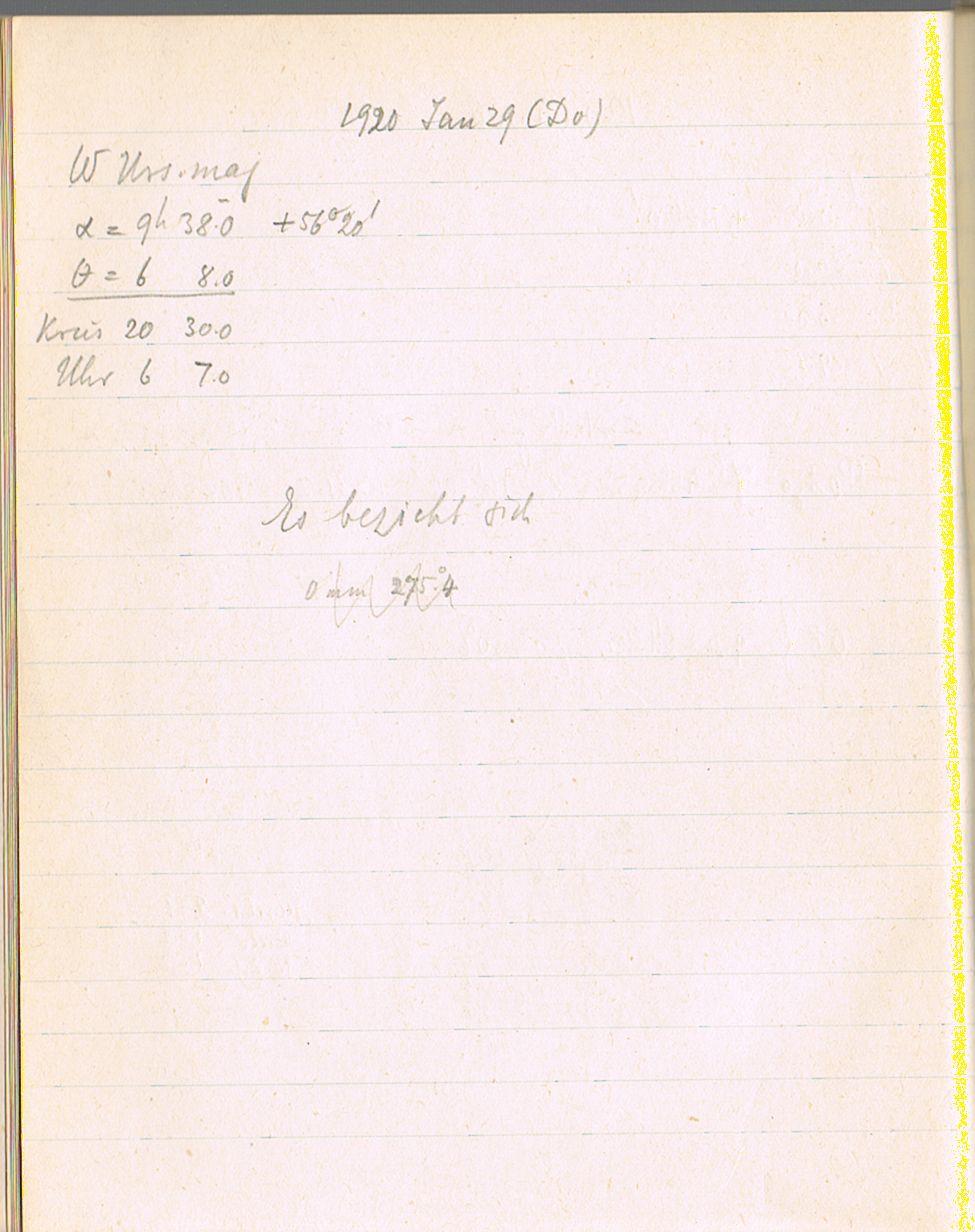 1920 Jan 29 (Do)
W Urs. maj
α = 9h 38m.0 +56°20'
θ = 6 8.0
Kreis 20 30.0
Uhr 6 7.0
Es bezieht sich
0 mm 275°.4